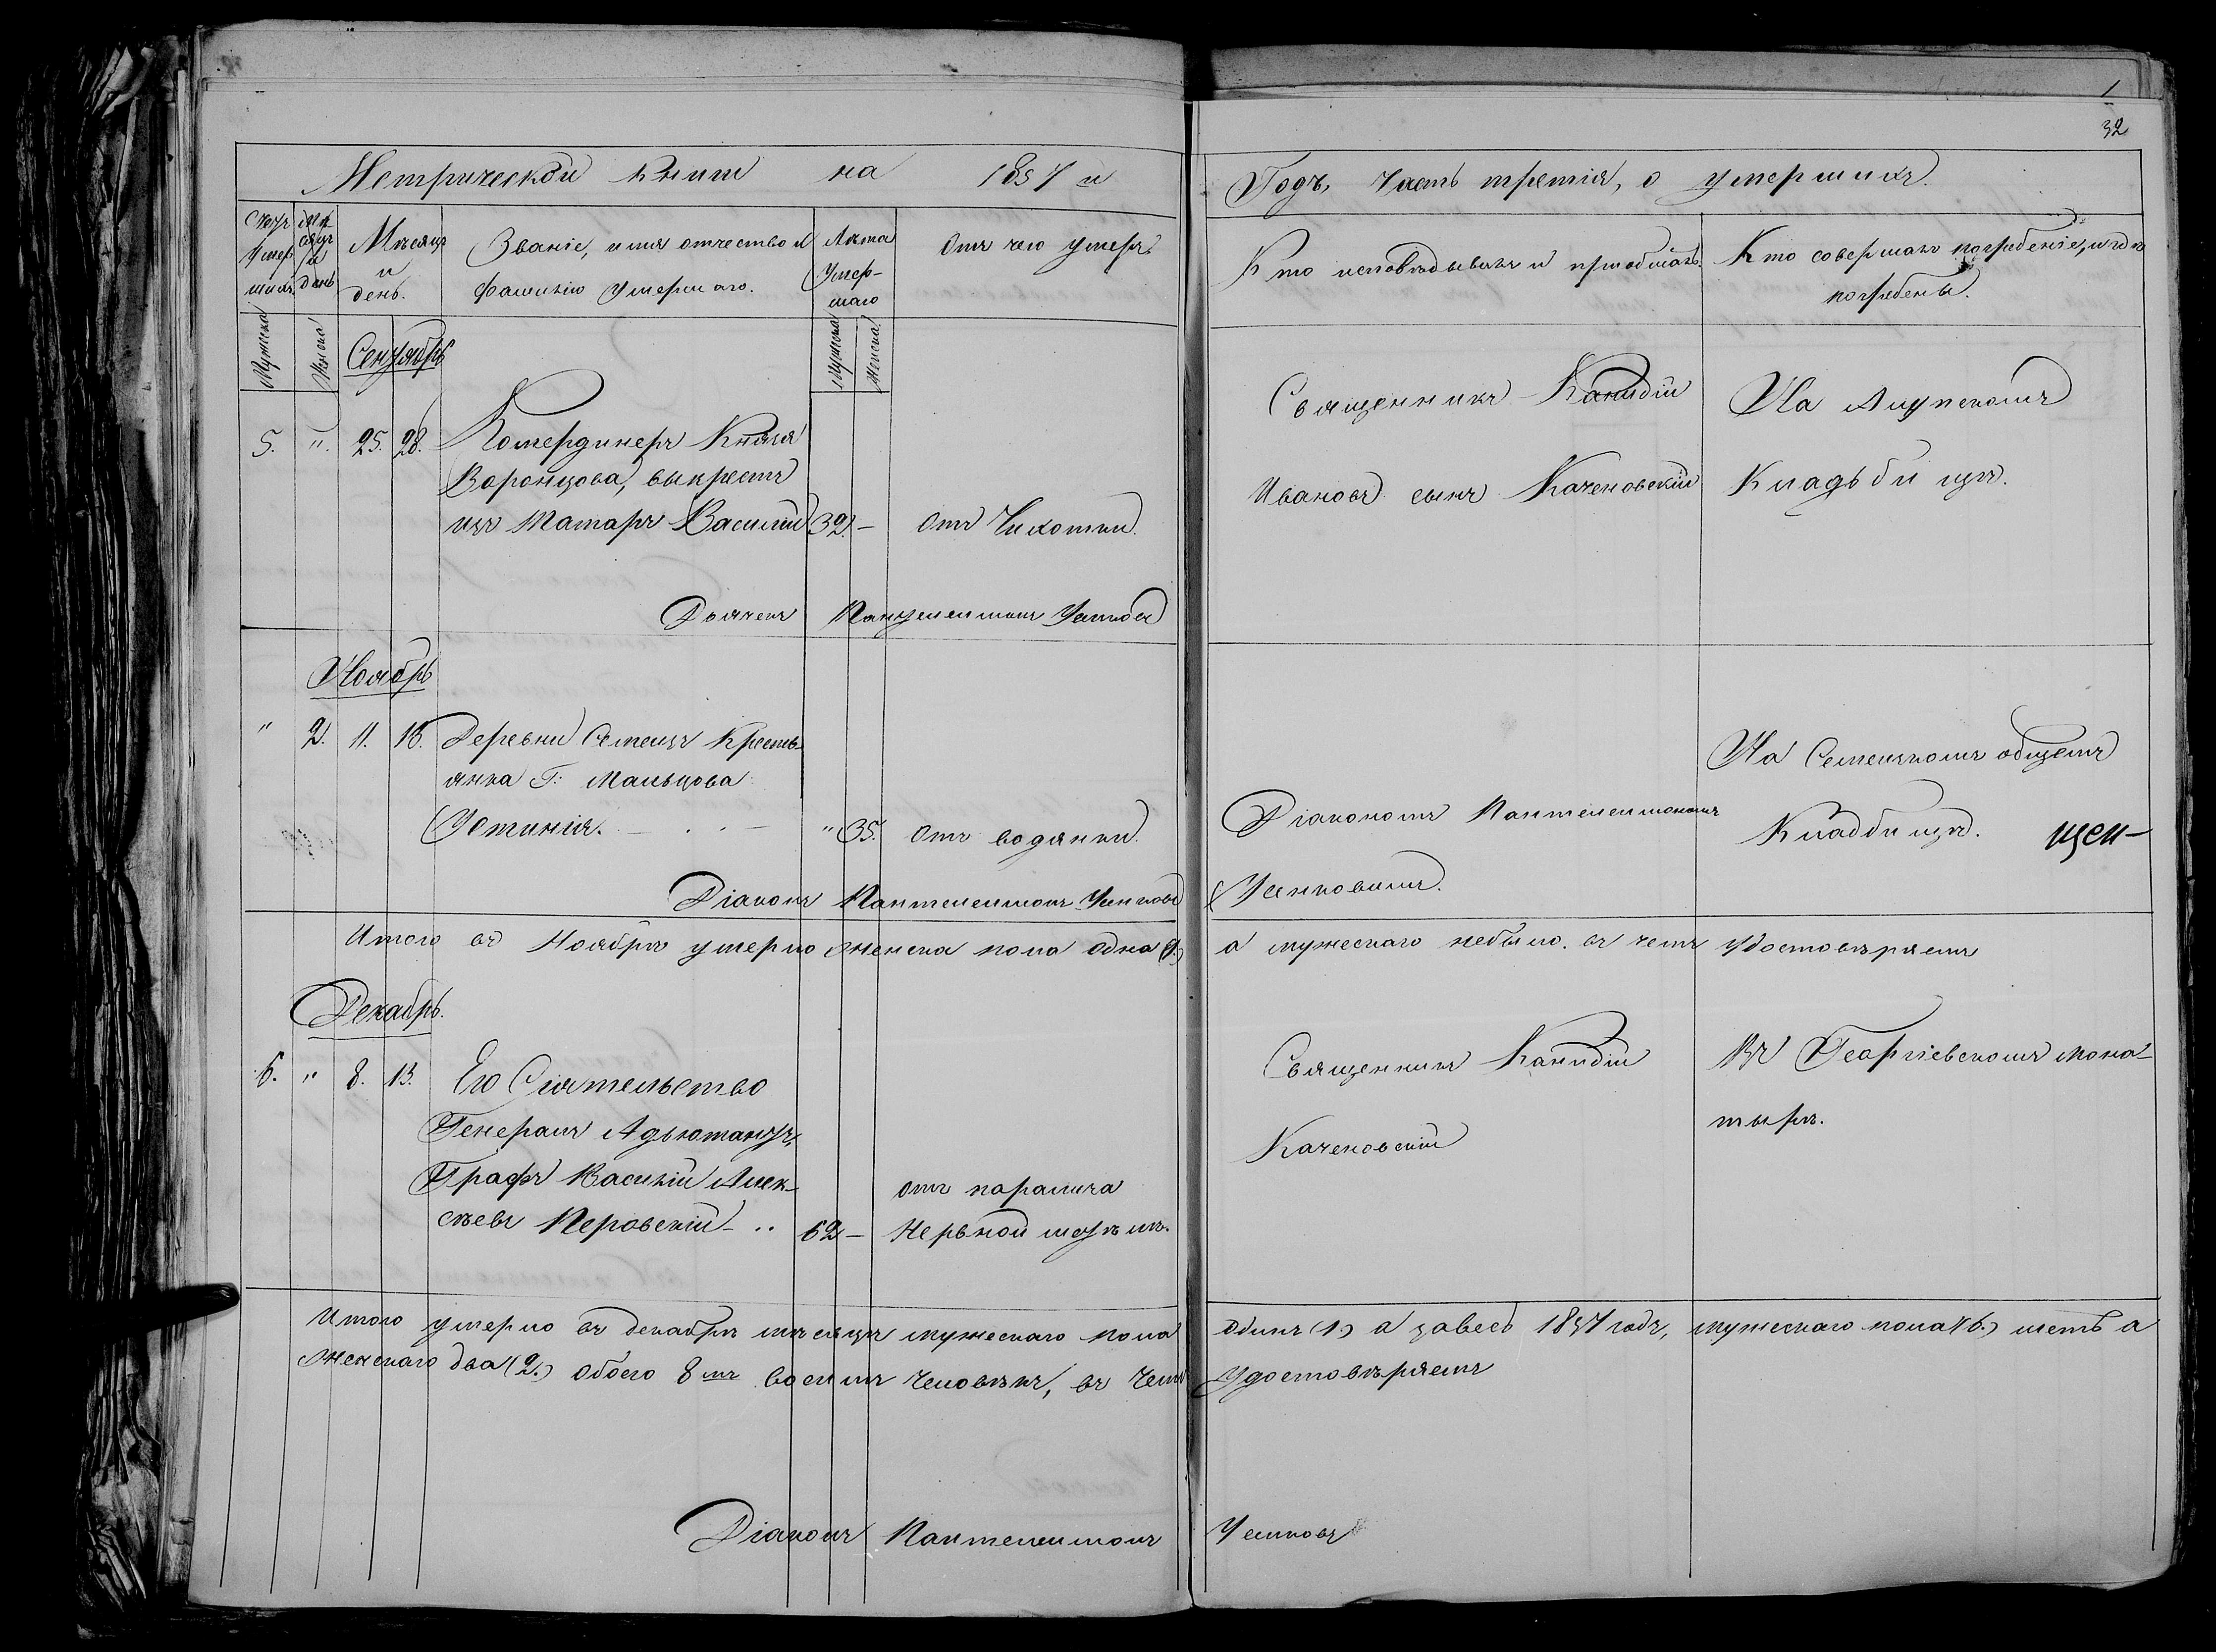 1
32
Метрической книги на 1857 й
Годъ, часть третiя, о умершихъ.
Счетъ умершихъ
Мѣсяцъ и день
Мѣсяцъ
и
день.
Званiе, имя отчество и
фамилiю умершаго.
Лѣта
Умер-
шаго
Отъ чего умеръ
Кто исповѣдывалъ и прiобщалъ.
Кто совершалъ погребенiе, и гдѣ
погребены.
Мужеска
Женска
Мужеска
Женска
Сентябрь
5. " 25. 28. Комердинеръ Князя
Воронцова, выкрестъ
изъ Татаръ Василiй 32. — Отъ Чихотки.
Священникъ Канидiй
Ивановъ сынъ Каченовскiй
На Алупскомъ
Кладьбищѣ.
Дьячекъ Пантелеимонъ
Ноябрь
" 2. 11. 13. Деревни Семеизъ Кресть
янка Г: Мальцова
Устинiя. " 35. Отъ водянки.
Дiакономъ Пантелеимономъ
На Семеизкомъ общемъ
Кладбищѣ. щен-
Дiаконъ Пантелеимонъ
Итого въ Ноябрѣ умерло женска пола одна (1.) а мужескаго небыло. въ чемъ удостовѣряемъ
Декабрь.
6. " 8. 13. Его Сiятельство
Генералъ Адьютантъ,
Графъ Василiй Алек-
сѣевъ Перовскiй - .. 62 — отъ паралича
Нервной
Священникъ Канидiй
Каченовскiй
Въ Георгiевскомъ мона-
тырѣ.
Итого умерло въ декабрѣ мѣсяцѣ мужескаго пола Одинъ (1.) а завесь 1857 годъ, мужескаго пола (6.) шесть а
женскаго два (2.) обоего 8 мъ восемь человѣкъ, въ чемъ удостовѣряемъ
Дiаконъ Пантелеимонъ